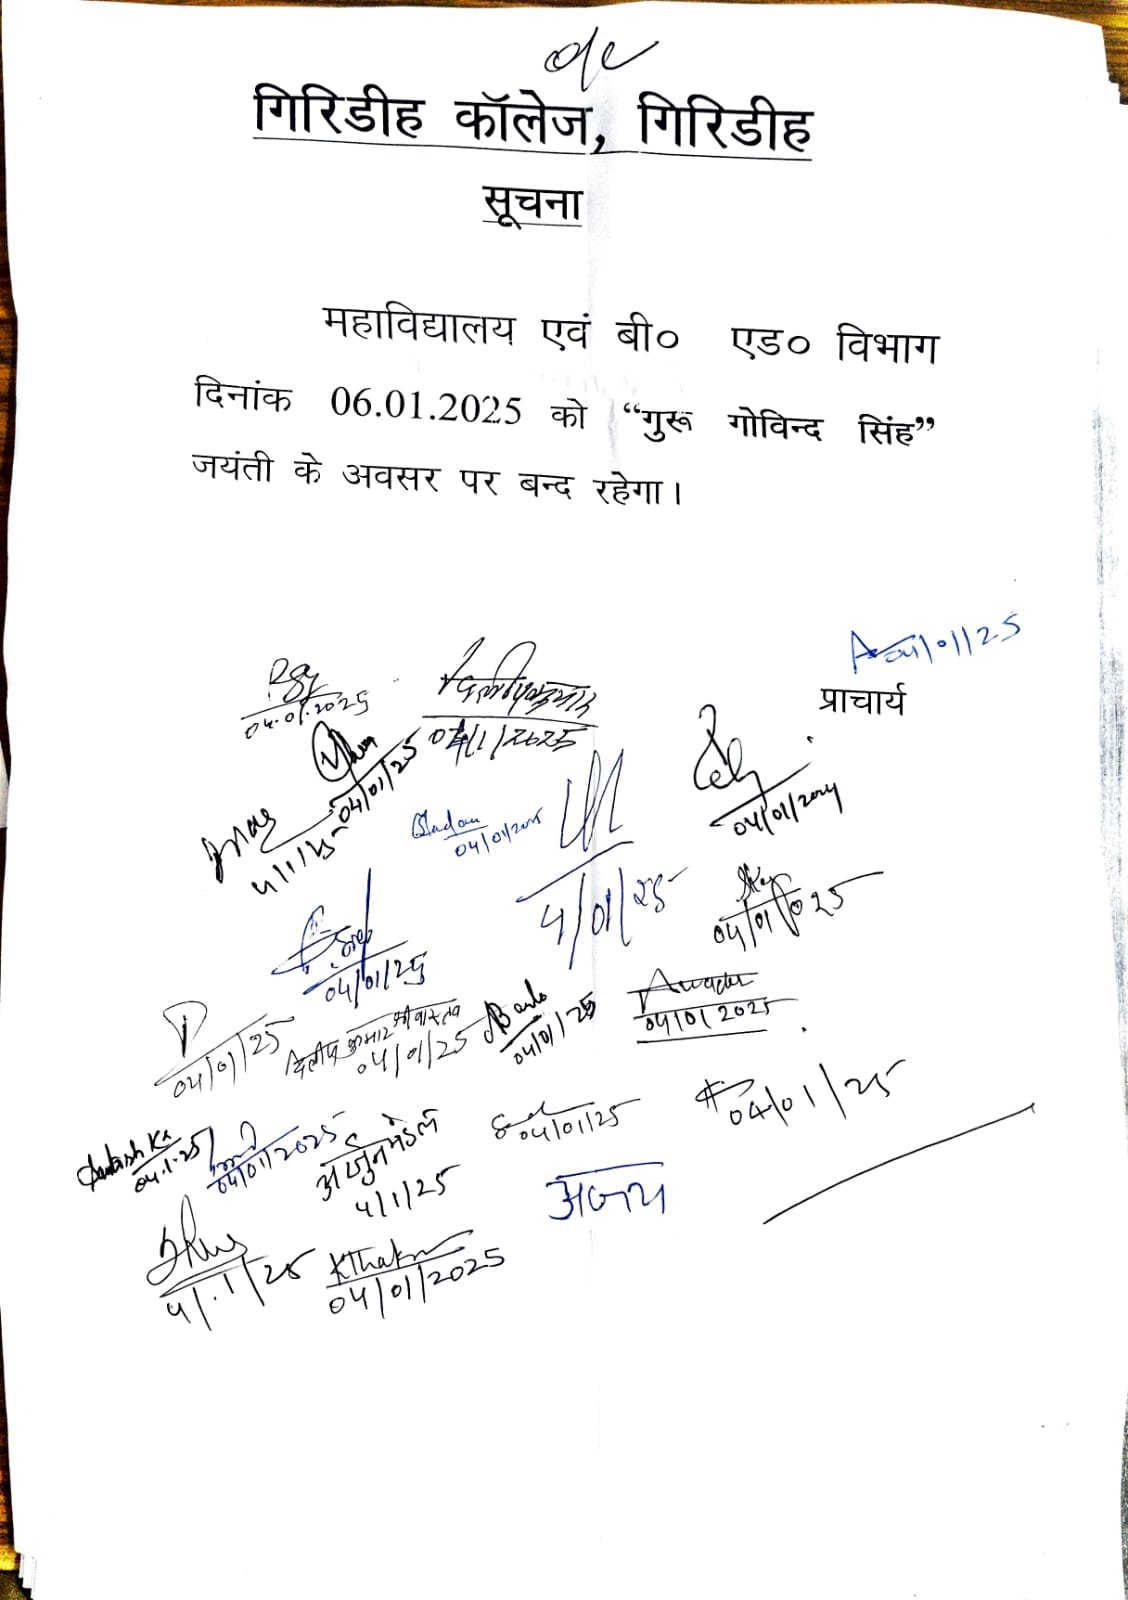 गिरिडीह कॉलेज, गिरिडीह
सूचना
महाविद्यालय एवं बी० एड० विभाग
दिनांक 06.01.2025 को “गुरू गोविन्द सिंह”
जयंती के अवसर पर बन्द रहेगा।
04/01/25
प्राचार्य
04.01.2025
04/1/2025
04/01/25
4/1/25
04/01/2025
4/01/25
04/01/2024
04/01/25
04/01/25
दिलीप कुमार श्रीवास्तव
04/01/25
04/01/25
04/01/2025
04/01/25
04.1.25
04/01/2025
अर्जुन मंडल
4/1/25
04/01/25
04/01/25
अजय
4/.1/25
KThakur
04/01/2025